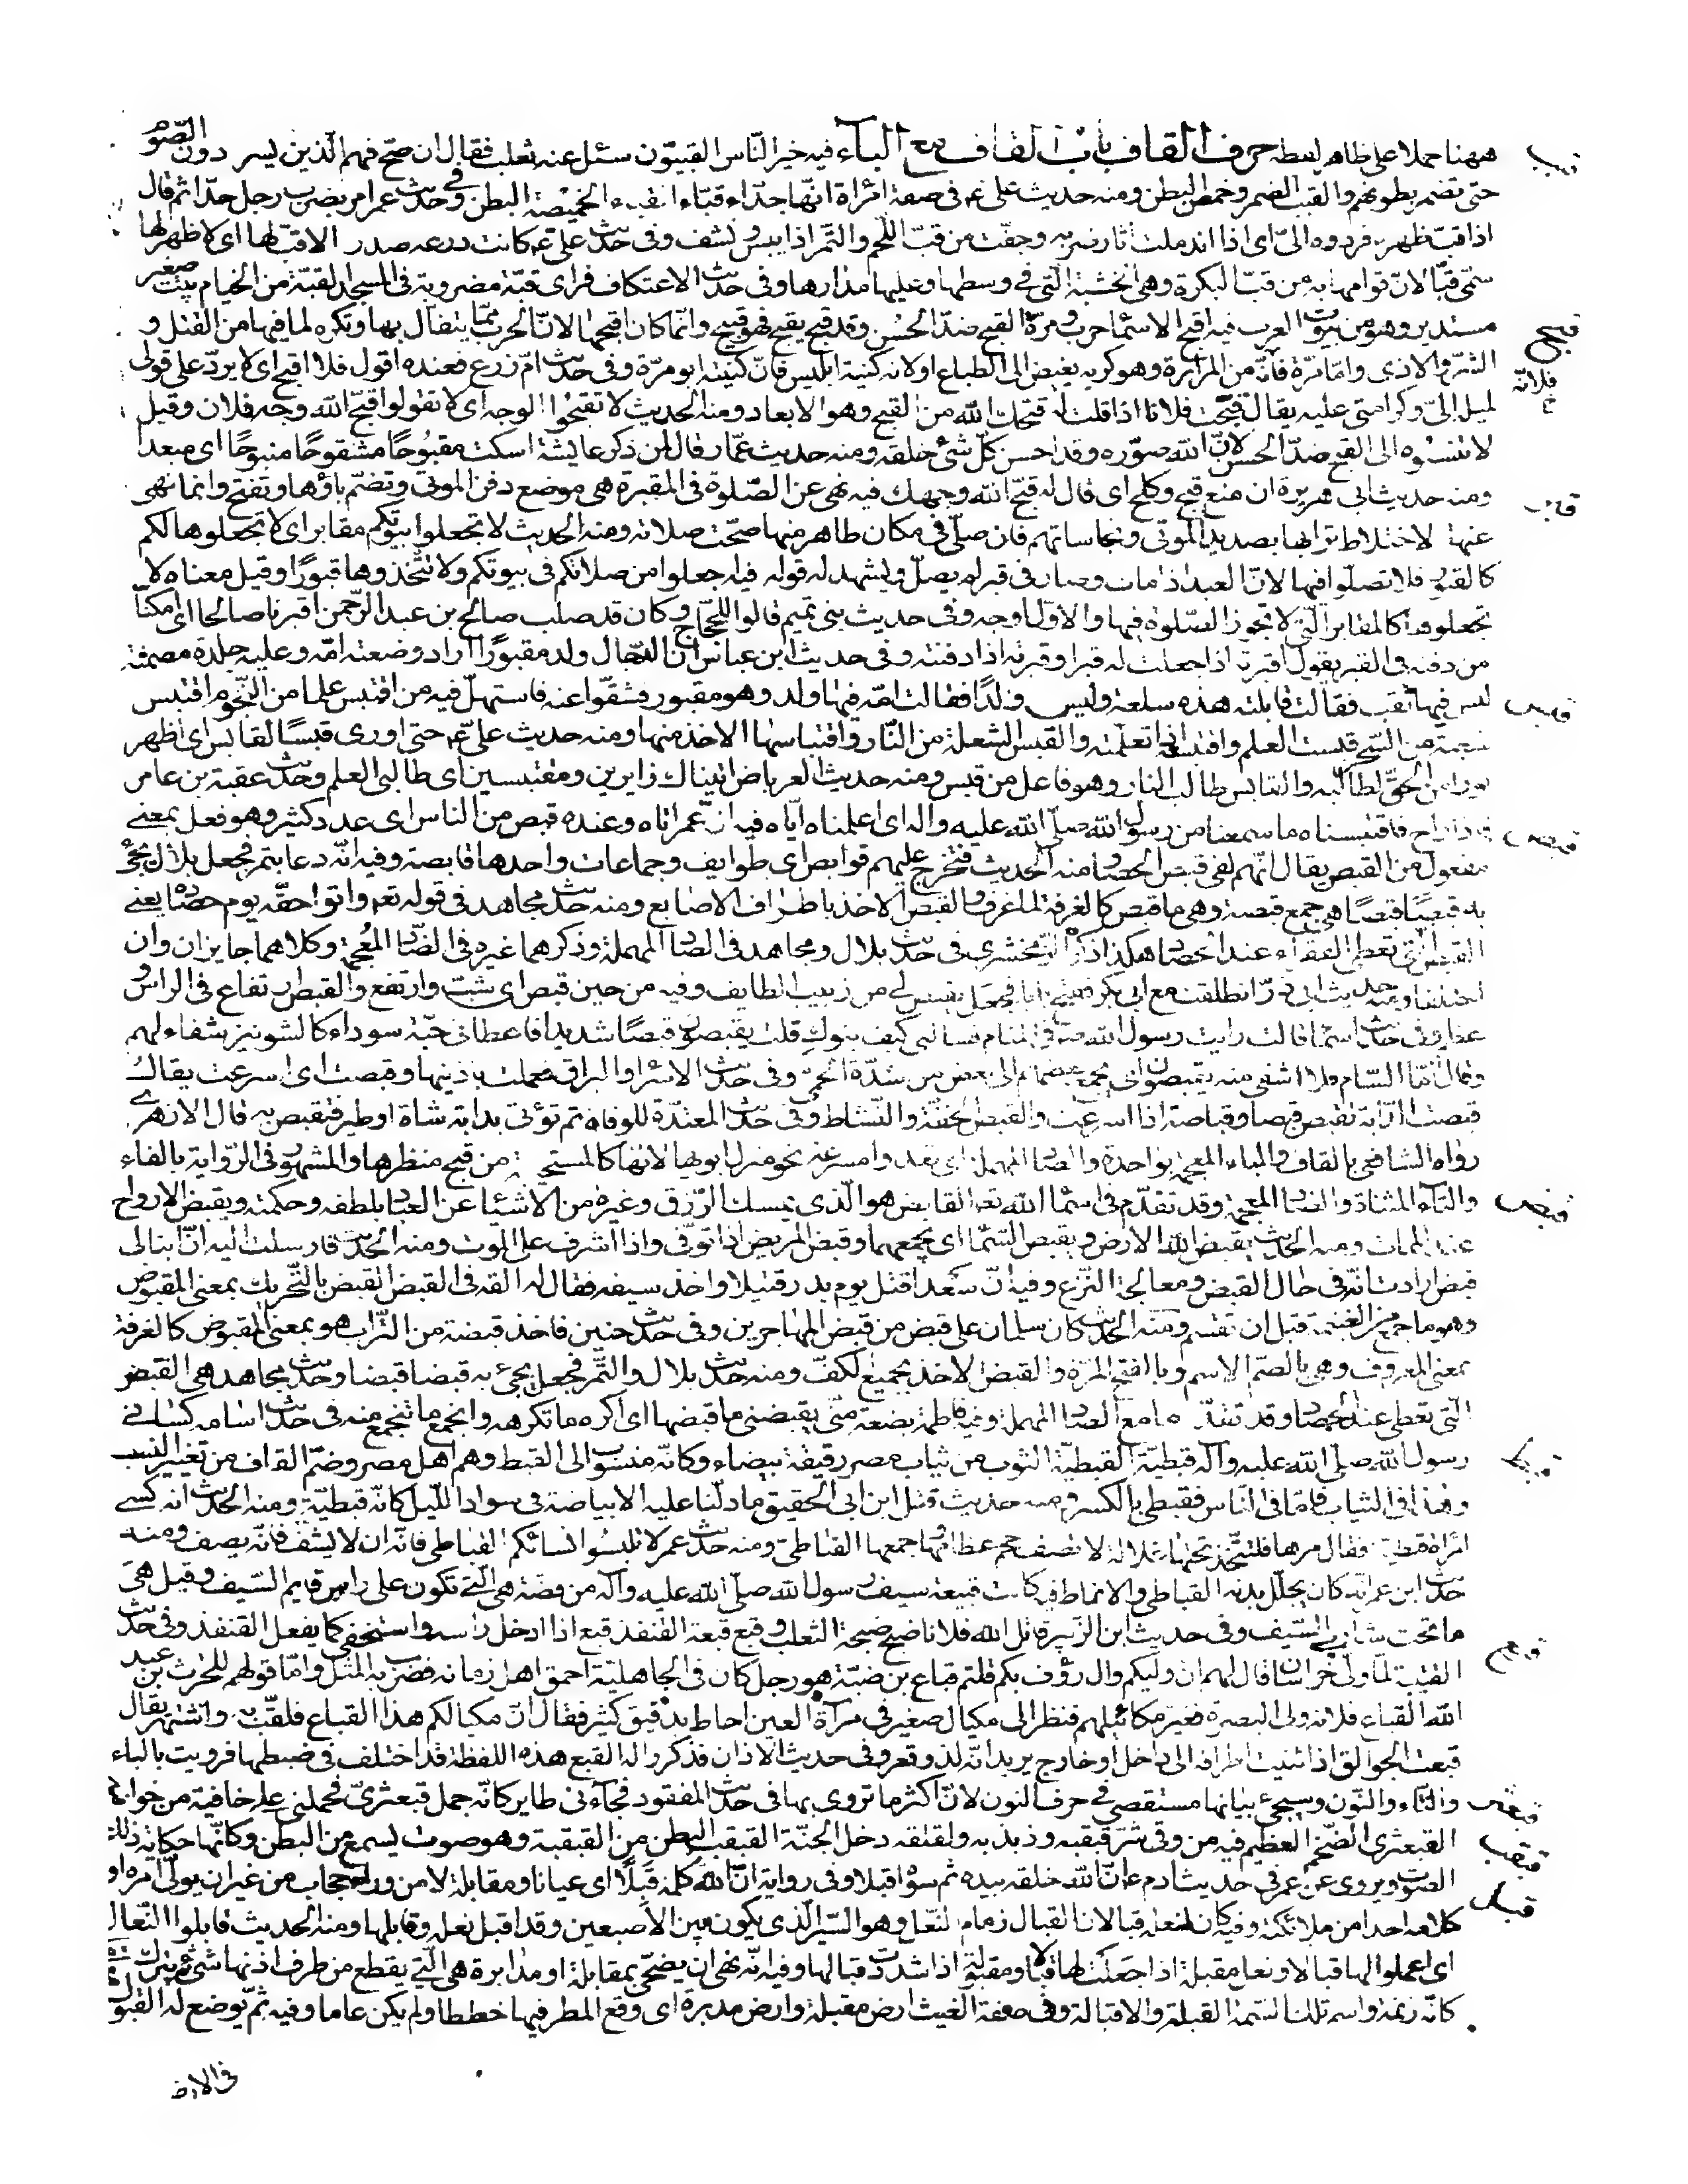 ههنا حملا على ظاهر لفظه حرف القاف باب القاف مع الباء فيه خير الناس القبيون سئل عنه ثعلب فقال ان صح فهم الذين يسردون الصوم
قبب
حتى تضمر بطونهم والقبب الضمر وخمص البطن ومنه حديث على ع في صفة امراة انها جداء قباء القباء الخميصة البطن وفي حديث عمر امر بضرب رجل حدا ثم قال
اذا قب ظهره فردوه الى اى اذا اندملت اثار ضربه وجفت من قب اللحم والتمر اذا يبس ونشف وفى حديث على ع كانت درعه صدرا لا قب لها اى لا ظهر لها
سمى قبا لان قوامها به من قب البكرة وهى الخشبة التى فى وسطها وعليها مدارها وفى حديث الاعتكاف فراى قبة مضروبة فى المسجد القبة من الخيام بيت صغير
مستدير وهو من بيوت العرب فيه اقبح الاسماء حرب ومرة القبح ضد الحسن وقد قبح يقبح فهو قبيح وانما كان اقبحها لان الحرب مما يتفال بها وتكره لما فيها من القتل و
قبح
الشر والاذى واما مرة فانه من المرارة وهو كريه بغيض الى الطباع او لانه كنية ابليس فان كنيته ابو مرة وفى حديث ام زرع فعنده اقول فلا اقبح اى لا يرد على قولى
فلانه
لميله الى وكرامتى عليه يقال قبحت فلانا اذا قلت له قبحك الله من القبح وهو الابعاد ومنه الحديث لا تقبحوا الوجه اى لا تقولوا قبح الله وجه فلان وقيل
لا تنسبوه الى القبح ضد الحسن لان الله صوره وقد احسن كل شئ خلقه ومنه حديث عمار قال لمن ذكر عايشة اسكت مقبوحا مشقوحا منبوحا اى مبعدا
ومنه حديث ابى هريرة ان منع قبح وكلح اى قال له قبح الله وجهك فيه نهى عن الصلوة فى المقبرة هى موضع دفن الموتى وتضم باؤها وتفتح وانما نهى
عنها لاختلاط ترابها بصديد الموتى ونجاساتهم فان صلى فى مكان طاهر منها صحت صلاته ومنه الحديث لا تجعلوا بيوتكم مقابر اى لا تجعلوها لكم
كالقبور فلا تصلوا فيها لان العبد اذا مات وصار فى قبره لم يصل ويشهد له قوله فيه اجعلوا من صلاتكم فى بيوتكم ولا تتخذوها قبورا وقيل معناه لا
تجعلوها كالمقابر التى لا تجوز الصلوة فيها والاول اوجه وفى حديث بنى تميم قالوا للحجاج وكان قد صلب صالح بن عبد الرحمن اقبرنا صالحا اى امكنا
من دفنه فى القبر يقول اقبرته اذا جعلت له قبرا وقبرته اذا دفنته وفى حديث ابن عباس ان الدجال ولد مقبورا اراد وضعته امه وعليه جلدة مصمتة
ليس فيها ثقب فقالت قابلته هذه سلعة وليس ولدا فقالت امه فيها ولد وهو مقبور فشقوا عنه فاستهل فيه من اقتبس علما من النجوم اقتبس
قبس
شعبة من السحر قبست العلم واقتبسته اذا تعلمته والقبس الشعلة من النار واقتباسها الاخذ منها ومنه حديث على ع حتى اورى قبسا لقابس اى اظهر
نورا من الحق لطالبه والقابس طالب النار وهو فاعل من قبس ومنه حديث العرباض اتيناك زايرين ومقتبسين اى طالبى العلم وحديث عقبة بن عامر
فاذا راح فاقتبسناه ما سمعنا من رسول الله صلى الله عليه واله اى اعلمناه اياه فيه ان عمر اتاه وعنده قبص من الناس اى عدد كثير وهو فعل بمعنى
قبص
مفعول من القبص يقال انهم لفى قبص الحصا ومنه الحديث فتخرج عليهم قوابص اى طوايف وجماعات واحدها قابصة وفيه انه دعا بتمر فجعل بلال يجئ
به قبصا قبصا هى جمع قبصة وهى ما قبص كالغرفة لما غرف والقبص الاخذ باطراف الاصابع ومنه حديث مجاهد فى قوله تعه واتوا حقه يوم حصاده يعنى
القبص التى تعطى الفقراء عند الحصاد هكذا ذكر الزمخشرى فى حديث بلال ومجاهد فى الصاد المهملة وذكرهما غيره فى الضاد المعجمة وكلاهما جايزان وان
اختلفا ومنه حديث ابى ذر انطلقت مع ابى بكر ففتح بابا فجعل يقبص لى من زبيب الطايف وفيه من حين قبص اى شب وارتفع والقبص ارتفاع فى الراس و
عظم وفى حديث اسما قالت رايت رسول الله ص فى المنام فسالنى كيف بنوك قلت يقبصون قبصا شديدا فاعطانى حبة سوداء كالشونيز شفاء لهم
وقال اما السام فلا اشفى منه يقبصون اى يجمع بعضهم الى بعض من شدة الحمى وفى حديث الاسراء والبراق فعملت باذنيها وقبصت اى اسرعت يقال
قبصت الدابة تقبص قبصا وقباصة اذا اسرعت والقبص الخفة والنشاط وفى حديث المعتدة للوفاة ثم تؤتى بدابة شاة او طير فتقبص به قال الازهرى
رواه الشافعى بالقاف والباء المعجمة بواحدة والصاد المهملة اى تعدو مسرعة نحو منزل ابويها لانها كالمستحيية من قبح منظرها والمشهور فى الرواية بالفاء
والتاء المثناة والضاد المعجمة وقد تقدم فى اسماء الله تعه القابض هو الذى يمسك الرزق وغيره من الاشياء عن العباد بلطفه وحكمته ويقبض الارواح
قبض
عند الممات ومنه الحديث يقبض الله الارض ويقبض السماء اى يجمعهما وقبض المريض اذا توفى واذا اشرف على الموت ومنه الحديث فارسلت اليه ان ابنا لى
قبض ارادت انه فى حال القبض ومعالجة النزع وفيه ان سعدا قتل يوم بدر قتيلا واخذ سيفه فقال له القه فى القبض القبض بالتحريك بمعنى المقبوض
وهو ما جمع من الغنيمة قبل ان تقسم ومنه الحديث كان سلمان على قبض من قبض المهاجرين وفى حديث حنين فاخذ قبضة من التراب هو بمعنى المقبوض كالغرفة
بمعنى المغروف وهى بالضم الاسم وبالفتح المرة والقبض الاخذ بجميع الكف ومنه حديث بلال والتمر فجعل يجئ به قبضا قبضا وحديث مجاهد هى القبض
التى تعطى عند الحصاد وقد تقدما مع الصاد المهملة وفيه فاطمة بضعة منى يقبضنى ما قبضها اى اكره ما تكرهه وانجمع ما تنجمع منه فى حديث اسامة كسانى
رسول الله صلى الله عليه وآله قبطية القبطية الثوب من ثياب مصر رقيقة بيضاء وكانه منسوب الى القبط وهم اهل مصر وضم القاف من تغيير النسب
قبط
وهذا فى الثياب فاما فى الناس فقبطى بالكسر ومنه حديث قتل ابن ابى الحقيق ما دلنا عليه الا بياضه فى سواد الليل كانه قبطية ومنه الحديث انه كسى
امراة قبطية فقال مرها فلتتخذ تحتها غلالة لا تصف حجم عظامها وجمعها القباطى ومنه حديث عمر لا تلبسوا نسائكم القباطى فانه ان لا يشف فانه يصف ومنه
حديث ابن عمر انه كان يجلل بدنه القباطى والانماط فيه كانت قبيعة سيف رسول الله صلى الله عليه وآله من فضة هى التى تكون على راس قايم السيف وقيل هى
ما تحت شاربى السيف وفى حديث ابن الزبير قاتل الله فلانا ضبح ضبحة الثعلب وقبع قبعة القنفذ قبع اذا ادخل راسه واستخفى كما يفعل القنفذ وفى حديث
قبع
القتيبة لما ولى خراسان قال لهم ان وليكم وال رؤف بكم قلتم قباع بن ضبة هو رجل كان فى الجاهلية احمق اهل زمانه فضرب به المثل واما قولهم للحرث بن عبد
الله القباع فلانه ولى البصرة فغير مكائيلهم فنظر الى مكيال صغير فى مرآة العين احاط بدقيق كثير فقال ان مكيالكم هذا القباع فلقب به واشتهر يقال
قبعت الجوالق اذا ثنيت اطرافه الى داخل او خارج يريد انه لذو قعر وفى حديث الاذان فذكروا له القبع هذه اللفظة قد اختلف فى ضبطها فرويت بالباء
والتاء والثاء والنون وسيجئ بيانها مستقصى فى حرف النون لان اكثر ما تروى بها فى حديث المفقود فجاءنى طاير كانه جمل قبعثرى فحملنى على خافية من خوافيه
قبعثر
القبعثرى الضخم العظيم فيه من وقى شر قبقبه وذبذبه ولقلقه دخل الجنة القبقب البطن من القبقبة وهو صوت يسمع من البطن وكانها حكاية ذلك
قبقب
الصوت ويروى عن عمر فى حديث ادم ع ان الله خلقه بيده ثم سواه قبلا وفى رواية ان الله كلمه قبلا اى عيانا ومقابلة لا من وراء حجاب من غير ان يولى امره او
قبل
كلامه احدا من ملائكته وفيه كان لنعله قبالان القبال زمام النعل وهو السير الذى يكون بين الاصبعين وقد اقبل نعله وقابلها ومنه الحديث قابلوا النعال
اى اعملوا لها قبالا ونعل مقبلة اذا جعلت لها قبالا ومقبولة اذا شددت قبالها وفيه انه نهى ان يضحى بمقابلة او مدابرة هى التى يقطع من طرف اذنها شئ ثم يترك
كانه زنمة واسم تلك السمة القبلة والاقبالة وفى صفة الغيث ارض مقبلة وارض مدبرة اى وقع المطر فيها خططا ولم يكن عاما وفيه ثم يوضع له القبول
فى الارض